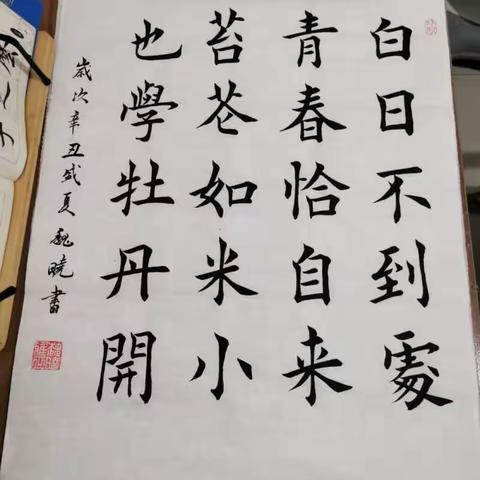 白日不到處
青春恰自来
苔芲如米小
也學牡丹開
歲次辛丑盛夏魏曉書